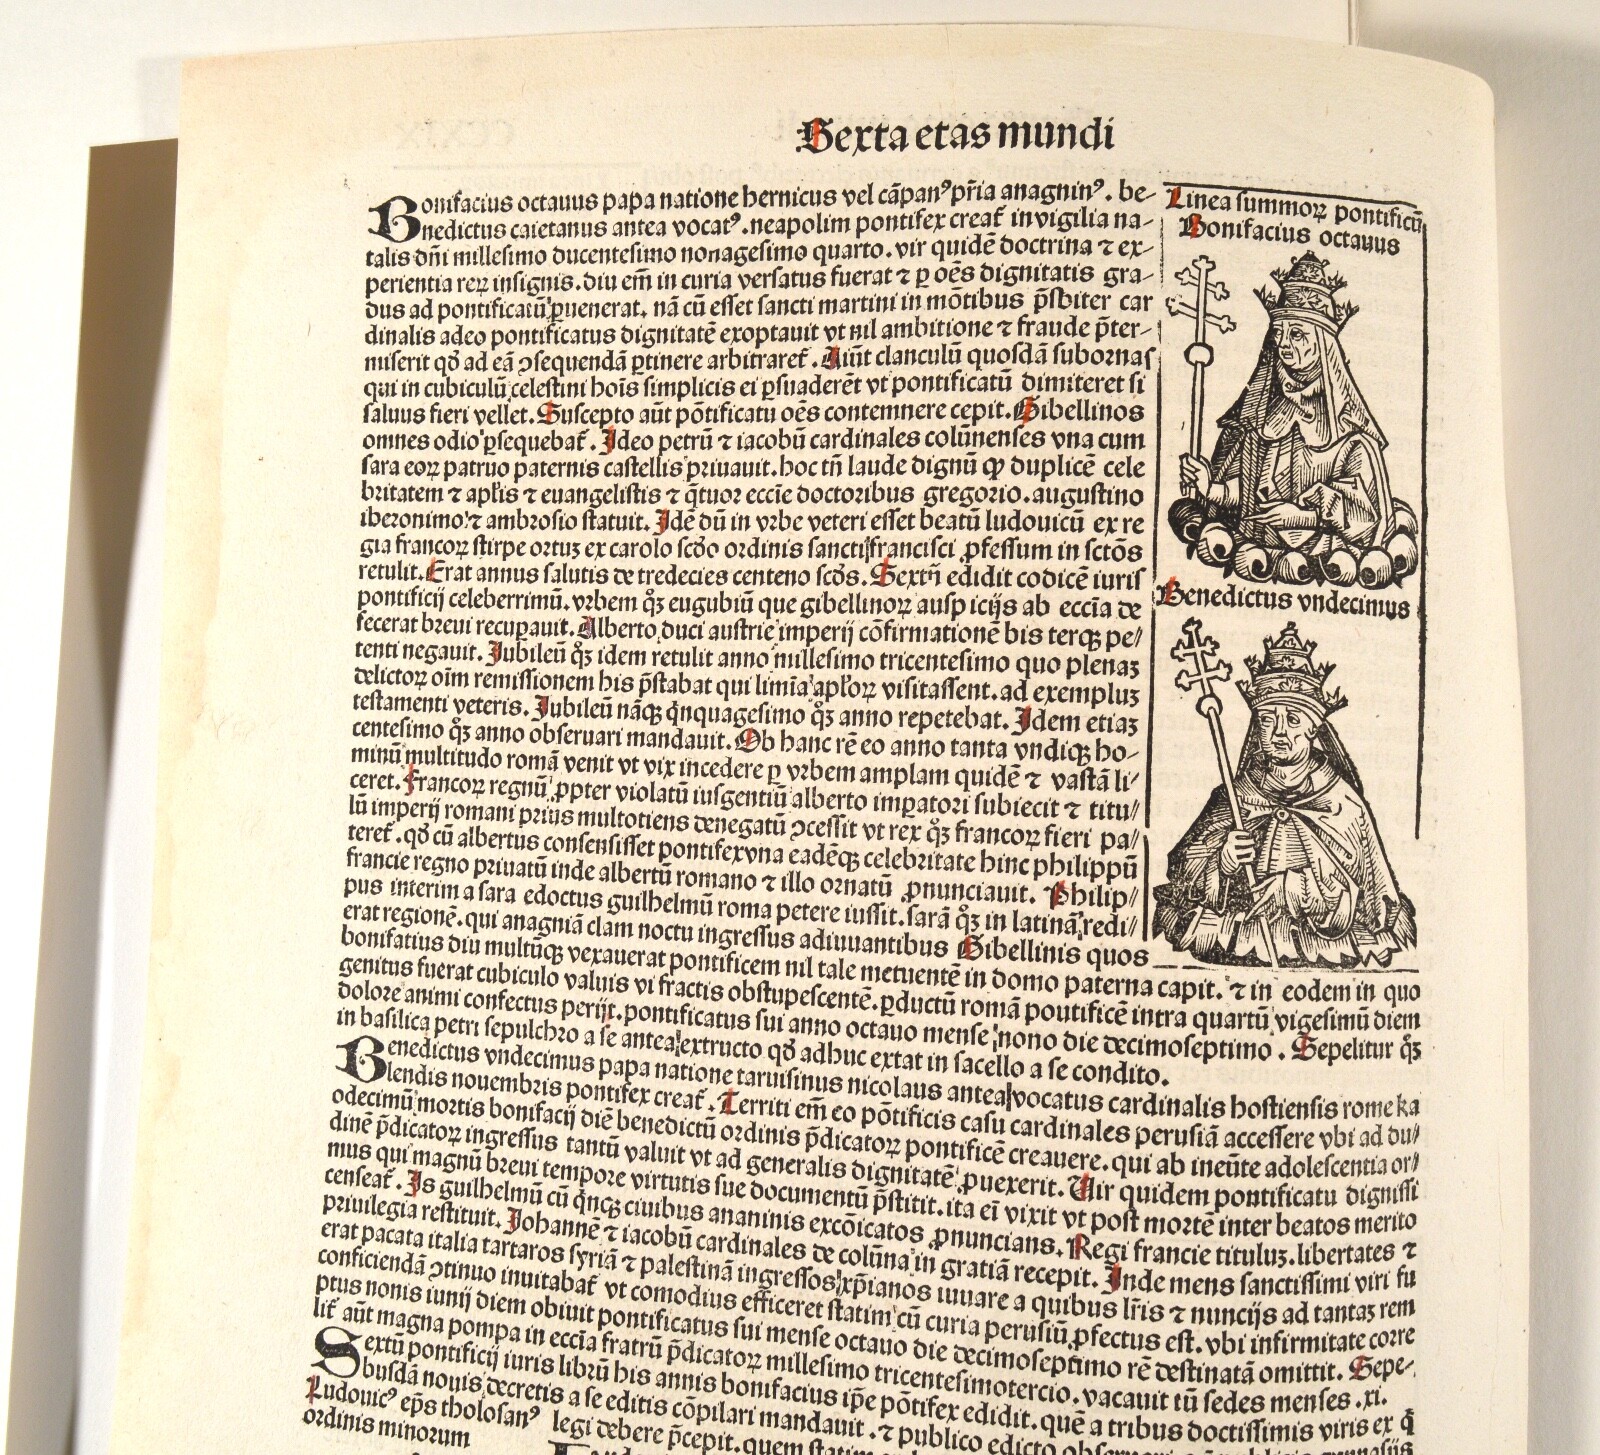 Sexta etas mundi
Bonifacius octauus papa natione hernicus vel cãpanꝰ pr̃ia anagninꝰ. be-
nedictus caietanus antea vocatꝰ. neapolim pontifex creat̃ in vigilia na-
talis dñi millesimo ducentesimo nonagesimo quarto. vir quidẽ doctrina ⁊ ex-
perientia reꝝ insignis. diu em̃ in curia versatus fuerat ⁊ ꝑ oẽs dignitatis gra-
dus ad pontificatũ ꝑuenerat. nã cũ esset sancti martini in mõtibus p̃sbiter car
dinalis adeo pontificatus dignitatẽ exoptauit vt nil ambitione ⁊ fraude p̃ter-
miserit qđ ad eã ꝯsequendã ꝑtinere arbitraret̃. Aiũt clanculũ quosdã subornas
qui in cubiculũ celestini hoĩs simplicis ei ꝑsuaderẽt vt pontificatũ dimiteret si
saluus fieri vellet. Suscepto aũt põtificatu oẽs contemnere cepit. Gibellinos
omnes odio ꝓsequebat̃. Ideo petrũ ⁊ iacobũ cardinales colũnenses vna cum
sara eoꝝ patruo paternis castellis priuauit. hoc tñ laude dignũ ꝙ duplicẽ cele
britatem ⁊ aplis ⁊ euangelistis ⁊ q̃tuor eccie doctoribus gregorio. augustino
iheronimo ⁊ ambrosio statuit. Idẽ dũ in vrbe veteri esset beatũ ludouicũ ex re
gia francoꝝ stirpe ortuꝫ ex carolo scđo ordinis sancti francisci ꝓfessum in sctõs
retulit. Erat annus salutis de tredecies centeno scđs. Sextũ edidit codicẽ iuris
pontificij celeberrimũ. vrbem qꝫ eugubiũ que gibellinoꝝ auspicijs ab eccia de
fecerat breui recuꝑauit. Alberto duci austrie imperij cõfirmationẽ bis terqꝫ pe//
tenti negauit. Jubileũ qꝫ idem retulit anno millesimo tricentesimo quo plenaꝫ
delictoꝝ oĩm remissionem his p̃stabat qui limĩa aplỏꝝ visitassent. ad exempluꝫ
testamenti veteris. Jubileũ nãqꝫ q̃nquagesimo qꝫ anno repetebat. Idem etiaꝫ
centesimo qꝫ anno obseruari mandauit. Ob hanc rẽ eo anno tanta vndiqꝫ ho-
minũ multitudo romã venit vt vix incedere ꝑ vrbem amplam quidẽ ⁊ vastã li-
ceret. Francoꝝ regnũ ꝓpter violatũ iusgentiũ alberto imꝑatori subiecit ⁊ titu//
lũ imperij romani prius multotiens denegatũ ꝯcessit vt rex qꝫ francoꝝ fieri pa//
teret̃. qđ cũ albertus consensisset pontifex vna eadẽqꝫ celebritate hinc philippũ
francie regno priuatũ inde albertũ romano ⁊ illo ornatũ ꝓnunciauit. Philip//
pus interim a sara edoctus guilhelmũ roma petere iussit. sarã qꝫ in latinã redi//
erat regionẽ. qui anagniã clam noctu ingressus adiuuantibus Gibellinis quos
bonifatius diu multũqꝫ vexauerat pontificem nil tale metuentẽ in domo paterna capit. ⁊ in eodem in quo
genitus fuerat cubiculo valuis vi fractis obstupescentẽ. ꝑductũ romã pontificẽ intra quartũ vigesimũ diem
dolore animi confectus perijt. pontificatus sui anno octauo mense nono die decimoseptimo. Sepelitur qꝫ
in basilica petri sepulchro a se antea extructo qđ adhuc extat in sacello a se condito.
Benedictus vndecimus papa natione taruisinus nicolaus antea vocatus cardinalis hostiensis rome ka
lendis nouembris pontifex creat̃. Territi em̃ eo põtificis casu cardinales perusiã accessere vbi ad du//
odecimũ mortis bonifacij diẽ benedictũ ordinis p̃dicatoꝝ pontificẽ creauere. qui ab ineũte adolescentia or//
dinẽ p̃dicatoꝝ ingressus tantũ valuit vt ad generalis dignitatẽ ꝓuexerit. Uir quidem pontificatu dignissi
mus qui magnũ breui tempore virtutis sue documentũ p̃stitit. ita eĩ vixit vt post mortẽ inter beatos merito
censeat̃. Is guilhelmũ cũ q̃nqꝫ ciuibus ananinis excõicatos ꝓnuncians. Regi francie tituluꝫ. libertates ⁊
priuilegia restituit. Johannẽ ⁊ iacobũ cardinales de colũna in gratiã recepit. Inde mens sanctissimi viri fu
erat pacata italia tartaros syriã ⁊ palestinã ingressos xp̃ianos iuuare a quibus lr̃is ⁊ nuncijs ad tantaꝫ rem
conficiendã ꝯtinuo inuitabat̃ vt comodius efficeret statim cũ curia perusiũ ꝓfectus est. vbi infirmitate corre
ptus nonis iunij diem obiuit pontificatus sui mense octauo die decimoseptimo rẽ destinatã omittit. Sepe-
lit̃ aũt magna pompa in eccĩa fratrũ p̃dicatoꝝ millesimo tricentesimotercio. vacauit tũ sedes menses .xi.
Sextũ pontificij iuris librũ his annis bonifacius ip̃e põtifex edidit. quẽ a tribus doctissimis viris ex q̃
busdã nouis decretis a se editis cõpilari mandauit. ⁊ publico edicto
legi debere p̃cepit. quem
Ludouicꝰ ep̃s tholosanꝰ
ordinis minorum
Linea summoꝝ pontificũ
Bonifacius octauus
Benedictus vndecimus